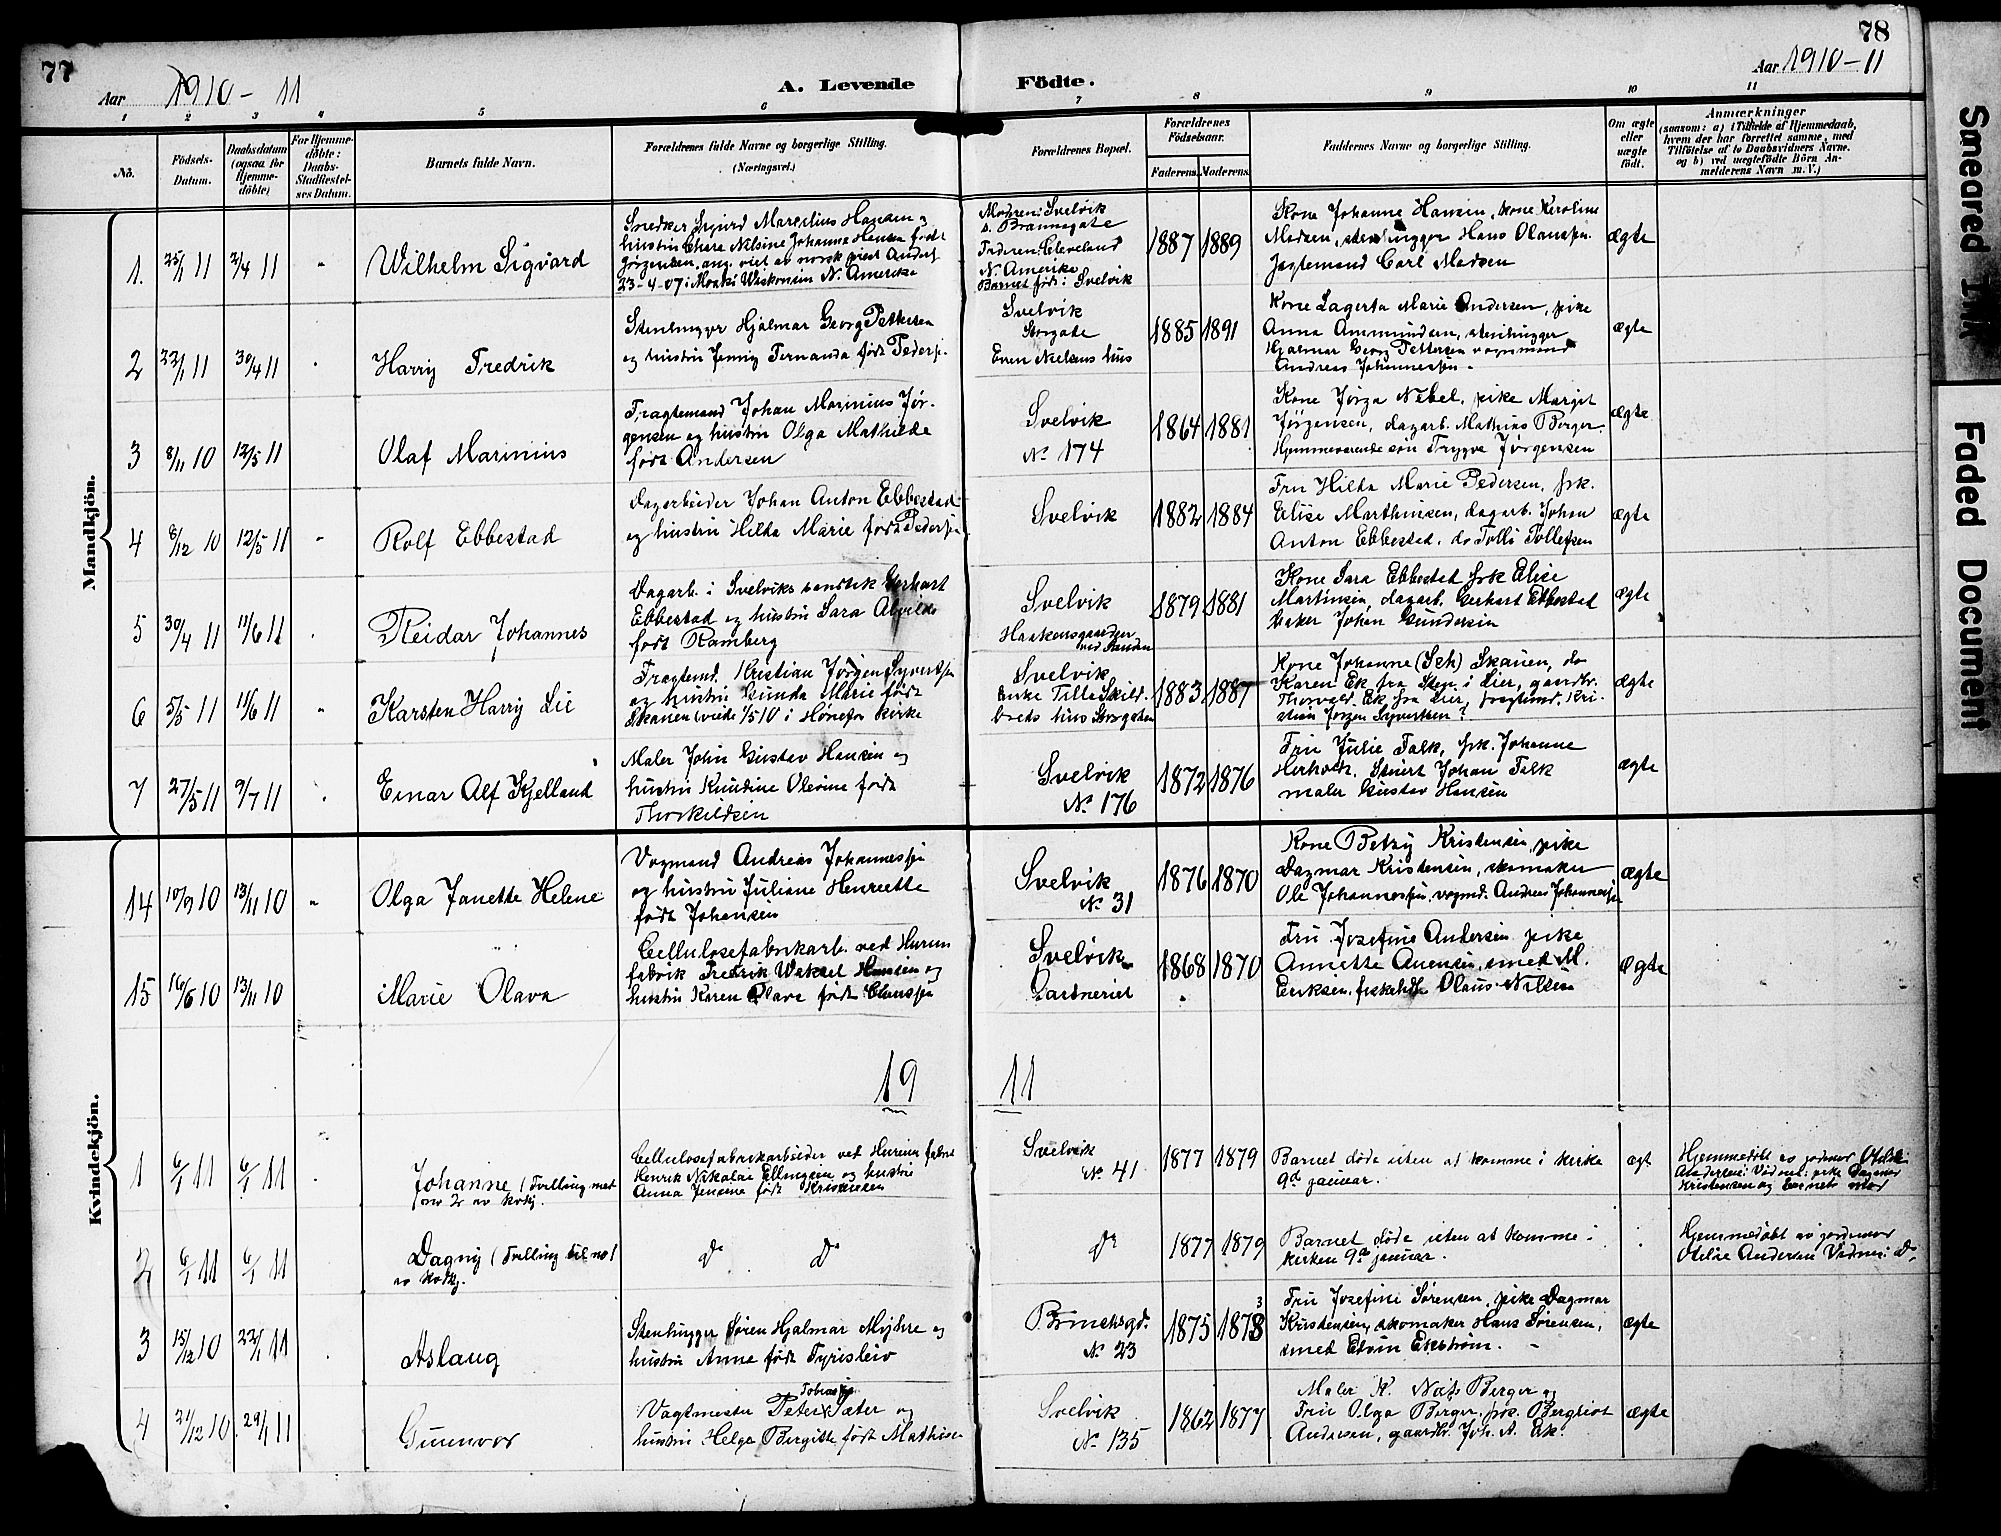 77
78
Aar 1910-11
A. Levende Födte.
Aar 1910-11
1 2 3 4 5 6 7 8 9 10 11
No.
Födsels-Datum.
Daabsdatum (ogsaa for Hjemme-döbte)
For Hjemme-döbte: Daabs-Stadfæstel-ses Datum.
Barnets fulde Navn.
Forældrenes fulde Navne og borgerlige Stilling.
(Næringsvei.)
Forældrenes Bopæl.
Forældrenes Födselsaar.
Faderens. Moderens.
Faddernes Navne og borgerlige Stilling.
Om ægte eller uægte födt.
Anmærkninger
(saasom: a) i Tilfælde af Hjemmedaab,
hvem der har forrettet samme, med
Tilföielse af to Daabsvidners Navne.
og b) ved uægtefödte Börn An-
melderens Navn m. V.)
Mandkjön.
1. 25/1 11 2/4 11 " Wilhelm Sigvard
Snedker Sigurd Marselius Hansen og
hustru Chara Nilsine Johanna Hansen født
Jørgensen, ang. viet av norsk prest
23-4-07 i Wiskonsin N. Amerika
Moderen: Svelvik
Faderen: Cleveland
N. Amerika
Barnet født i Svelvik
1887 1889
Kone Johanne Hansen, kone Karoline
Madsen, stenhugger Hans Olaussen
Jagtemand Carl Madsen
ægte
2 22/1 11 30/4 11 Harry Fredrik
Stenhugger Hjalmar Georg Pettersen
og hustru Jenny Fernanda født Pedersen
Svelvik
Storgate
Even Nielsens hus
1885 1891
Kone Lagerta Marie Andersen, pike
Anna Ammundsen, stenhugger
Hjalmar Georg Pettersen vognmand
Andreas Johannessen.
ægte
3 8/11 10 12/5 11 Olaf Marinius
Fragtemand Johan Marinius Jør-
gensen og hustru Olga Mathilde
født Andersen
Svelvik
No 174
1864 1881
Kone Jørga Nebel, pike Margit
Jørgensen, dagarb. Mathias Berger
Hjemmeværende søn Trygve Jørgensen
ægte
4 8/12 10 12/5 11 " Rolf Ebbestad
Dagarbeider Johan Anton Ebbestad
og hustru Hilda Marie født Pedersen
Svelvik
1882 1884
Fru Hilda Marie Pedersen, frk.
Elise Marthinsen, dagarb. Johan
Anton Ebbestad. do Tolle Tollefsen
ægte
5 30/4 11 11/6 11 Reidar Johannes
Dagarb. i Svelviks sandtak Gerhart
Ebbestad og hustru Sara Alvilde
født Ramberg
Svelvik
Haakonsgaarden
ved Sanden
1879 1881
Kone Sara Ebbestad frk Elise
Martinsen, dagarb. Gerhart Ebbestad
baker Johan Gundersen
ægte
6 5/5 11 11/6 11 " Karsten Harry Lie
Fragtemd. Kristian Jørgen Syvertsen
og hustru Gunda Marie født
Skauen (viede 1/5 10 i Hønefos kirke
Svelvik
Enke Tilla Skild-
breds hus Storgaten
1883 1887
Kone Johanne (Seh) Skauen, do
Karen Ek fra Sten i Lier, gaardbr.
Thorvald Ek fra Lier, fragtemd. Kri-
stian Jørgen Syvertsen?
ægte
7 27/5 11 9/7 11 Einar Alf Kjelland
Maler John Gustav Hansen og
hustru Knudine Olevine født
Thorkildsen
Svelvik
No 176
1872 1876
Fru Julie Falk, frk. Johanne
Stuert Johan Falk
maler Gustav Hansen
ægte
Kvindekjön.
14 10/9 10 13/11 10 " Olga Janette Helene
Vogmand Andreas Johannessen
og hustru Juliane Henriette
født Johansen
Svelvik
No 31
1876 1870
Kone Betsy Kristensen, pike
Dagmar Kristensen, skomaker
Ole Johannessen, vogmd. Andreas Johannessen
ægte
15 16/6 10 13/11 10 Marie Olava
Cellulosefabrikarb. ved Hurum
fabrik Fredrik Waksel Hansen og
hustru Karen Olava født Claussen
Svelvik
Gartneriet
1868 1870
Fru Josefine Andersen pike
Annette Anensen, smed M.
Eriksen. fiskeh. Olaus Nilsen
ægte
19 11
1 6/1 11 6/1 11 Johanne (Tvilling med
no 2 av kvkj.
Cellulosefabrikarbeider ved Hurum fabrik
Henrik Nikolai Ellingsen og hustru
Anna Jensine født Kristensen
Svelvik
No 41
1877 1879
Barnet døde uten at komme i kirke
9de januar.
ægte
Hjemmedøbt av jordmor Otelie
Andersen: Vidner: pike Dagmar
Kristensen og barnets mor
2 6/1 11 6/1 11 Dagny (Tvilling til no 1
av kvkj.
do do
do
1877 1879
Barnet døde uten at komme i
kirken 9de januar.
Hjemmedøbt av jordmor
Otelie Andersen Vidner: do.
3 15/12 10 22/1 11 Aslaug
Stenhugger Søren Hjalmar Myhre og
hustru Anne født Tyrisleiv
Brinchsgd.
No 23
1875 1878 3
Fru Josefine Sørensen. pike Dagmar
Kristensen, skomaker Hans Sørensen,
smed Edvin Ekstrøm.
ægte
4 21/12 10 29/1 11 Gunnvor
Vagtmester Peter Tobias Sæter og
hustru Helga Bergitte født Mathisen
Svelvik
No 135
1862 1877
Maler K. Berger og
Fru Olga Berger, frk. Bergliot
Andersen, gaardbr. Joh. A. Ek.
ægte
Smeared Ink
Faded Document